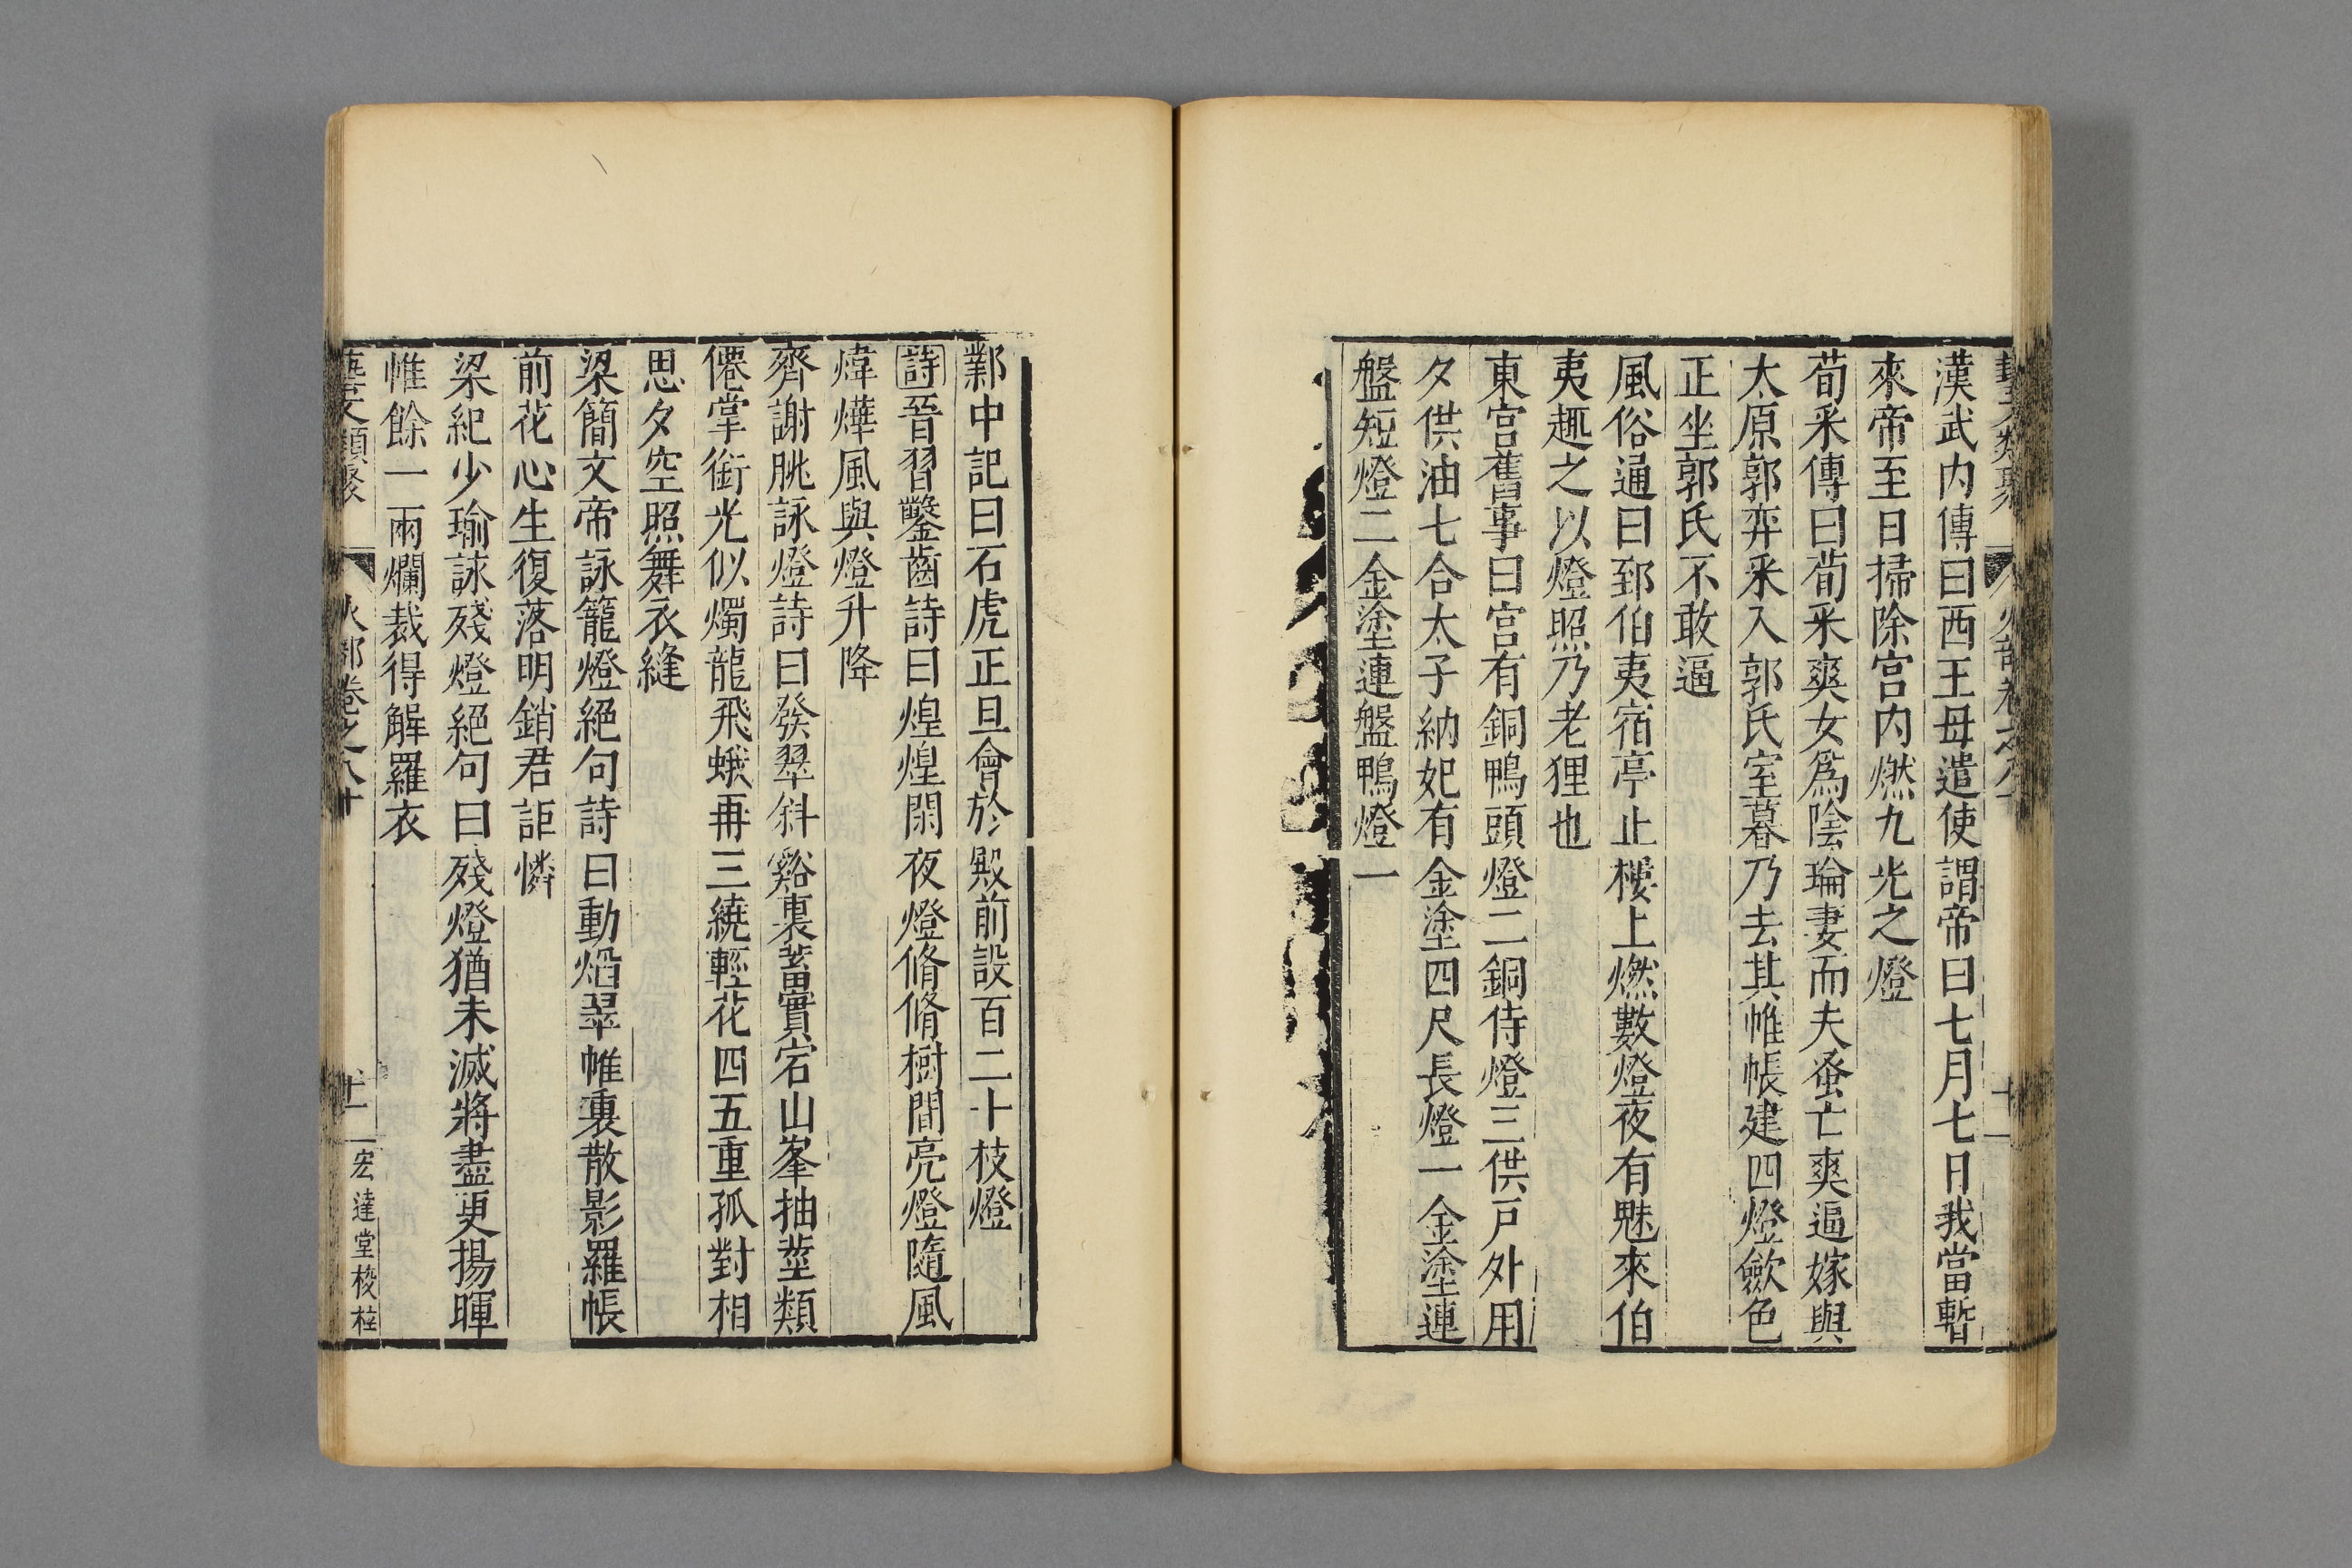 漢武内傳曰西王母遣使謂帝曰七月七日我當暫
來帝至日掃除宫内燃九光之燈
荀采傳曰荀采爽女爲陰瑜妻而夫蚤亡爽逼嫁與
太原郭弈采入郭氏室暮乃去其帷帳建四燈歛色
正坐郭氏不敢逼
風俗通曰郅伯夷宿亭止樓上燃數燈夜有魅來伯
夷趣之以燈照乃老狸也
東宫舊事曰宫有銅鴨頭燈二銅侍燈三供戸外用
夕供油七合太子納妃有金塗四尺長燈一金塗連
盤短燈二金塗連盤鴨燈一
鄴中記曰石虎正旦會於殿前設百二十枝燈
詩晉習鑿齒詩曰煌煌閑夜燈脩脩樹間亮燈隨風
煒燁風與燈升降
齊謝朓詠燈詩曰發翠斜谿裏蓄寶宕山峯抽莖類
僊掌銜光似燭龍飛蛾再三繞輕花四五重孤對相
思夕空照舞衣縫
梁簡文帝詠籠燈絕句詩曰動焰翠帷裏散影羅帳
前花心生復落明銷君詎憐
梁紀少瑜詠殘燈絕句曰殘燈猶未滅將盡更揚暉
惟餘一兩爛裁得解羅衣
藝文類聚 火部卷之八十 十一 宏達堂校栞